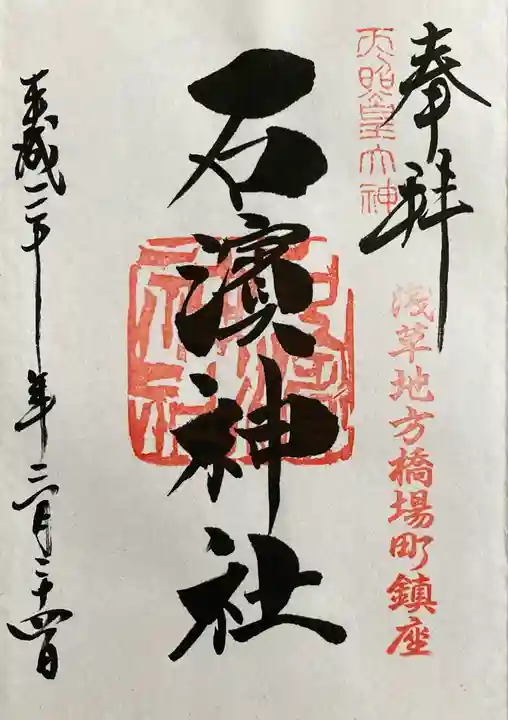 奉拜
天照皇大神
浅草地方橋場町鎮座
石濱神社
平成二十年三月二十四日